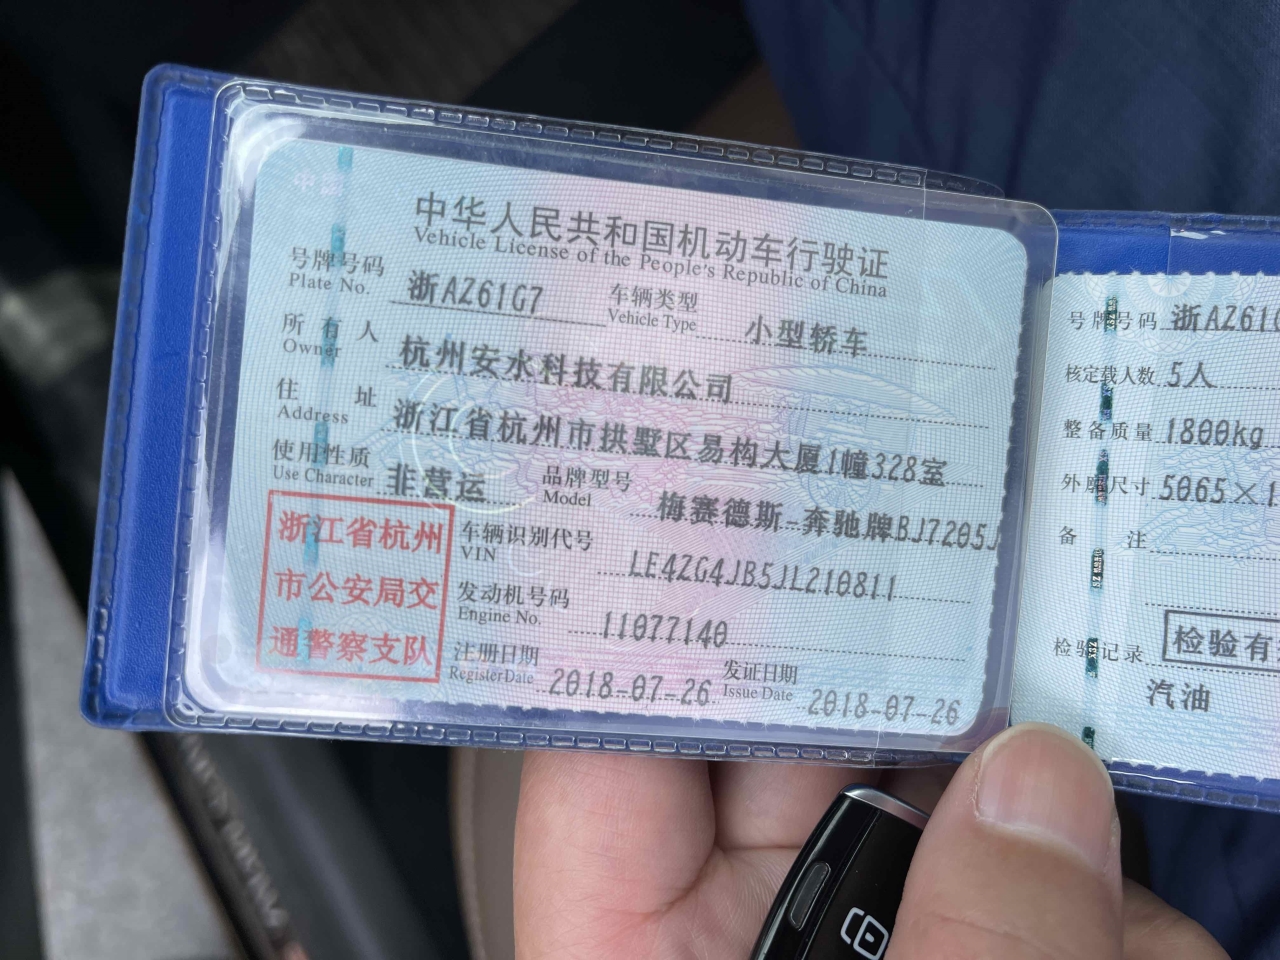 中华人民共和国机动车行驶证
Vehicle License of the People's Republic of China
号牌号码 浙AZ61G7 车辆类型 小型轿车
Plate No. Vehicle Type
所有人 杭州安水科技有限公司
Owner
住址 浙江省杭州市拱墅区易构大厦1幢328室
Address
使用性质 非营运 品牌型号 梅赛德斯-奔驰牌BJ7205J
Use Character Model
浙江省杭州
市公安局交
通警察支队
车辆识别代号 LE4ZG4JB5JL210811
VIN
发动机号码 11077140
Engine No.
注册日期 2018-07-26 发证日期 2018-07-26
Register Date Issue Date
号牌号码 浙AZ61G
核定载人数 5人
整备质量 1800kg
外廓尺寸 5065×1
备注
检验记录 检验有
汽油